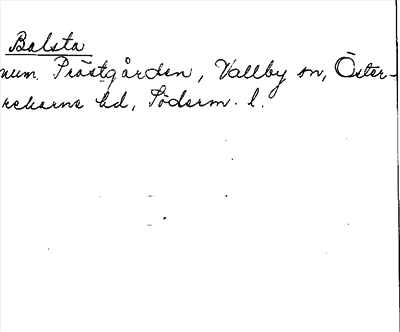 Balsta
num. Prästgården, Vallby sn, Öster-
rekarne hd, Söderm. l.